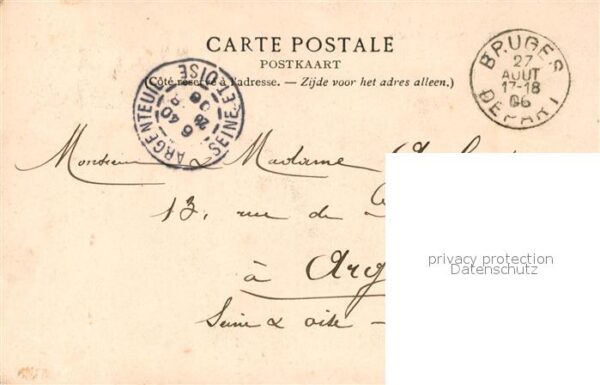 CARTE POSTALE
POSTKAART
(Côté réservé à l'adresse. — Zijde voor het adres alleen.)
BRUGES
27
AOUT
17-18
06
DEPART
ARGENTEUIL
SEINE-ET-OISE
6 40
28
06
Monsieur & Madame
13, rue de
à Arg
Seine & Oise —
privacy protection
Datenschutz